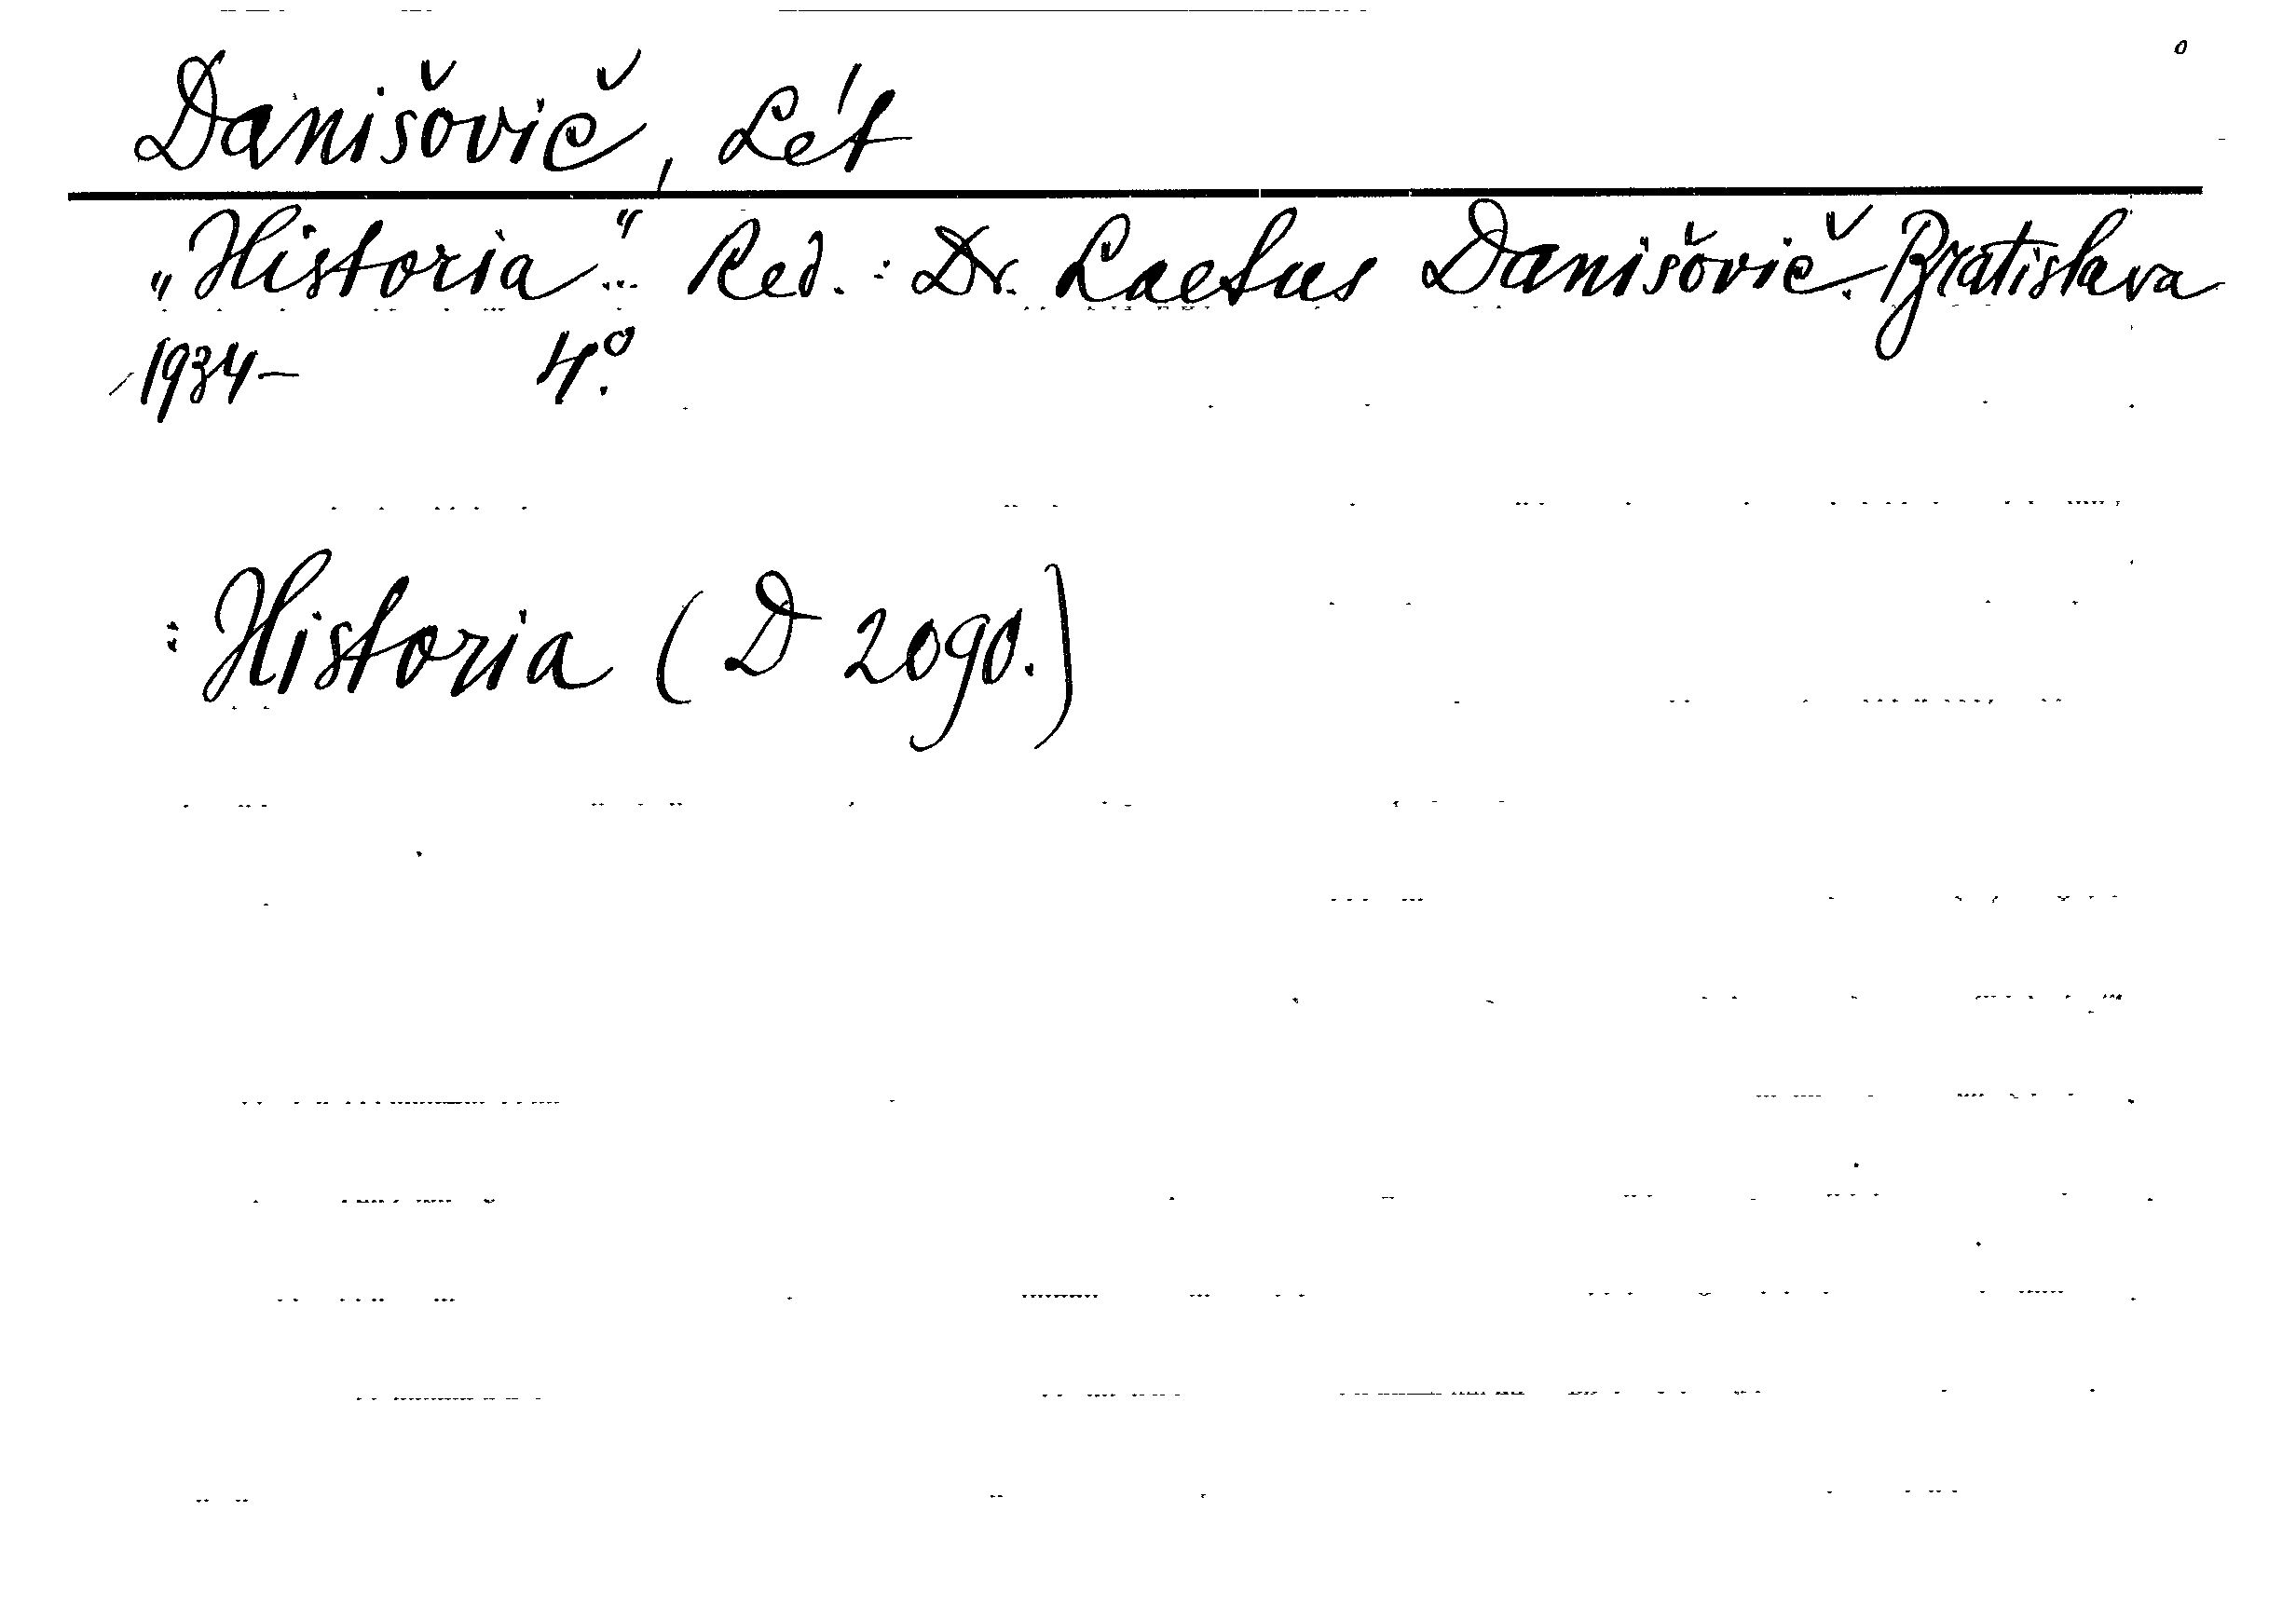 Danišovič, Lét
„Historia". Red.: Dr. Laetus Danišovič. Bratislava
1934– 4°.
: Historia (D 2090.)